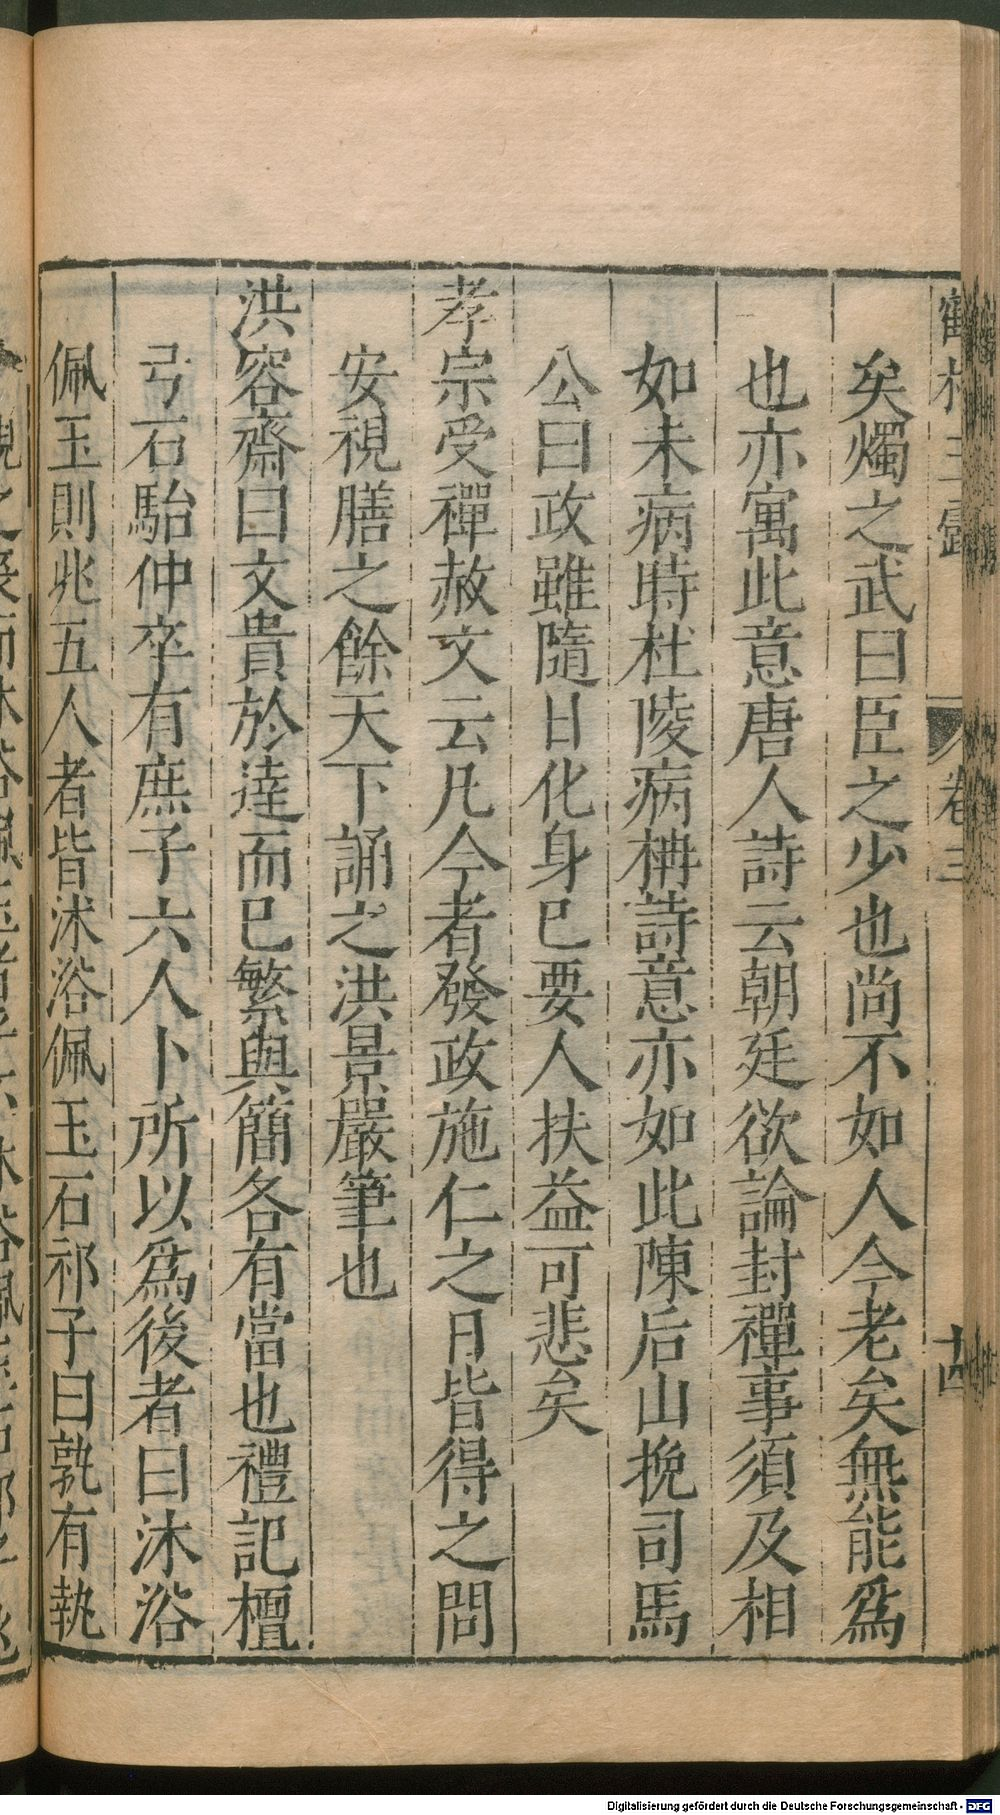 矣燭之武曰臣之少也尚不如人今老矣無能爲
也亦寓此意唐人詩云朝廷欲論封禪事須及相
如未病時杜陵病柟詩意亦如此陳后山挽司馬
公曰政雖隨日化身已要人扶益可悲矣
孝宗受禪赦文云凡今者發政施仁之月皆得之問
安視膳之餘天下誦之洪景嚴筆也
洪容齋曰文貴於達而已繁與簡各有當也禮記檀
弓石駘仲卒有庶子六人卜所以爲後者曰沐浴
佩玉則兆五人者皆沐浴佩玉石祁子曰孰有執
卷三
十四
Digitalisierung gefördert durch die Deutsche Forschungsgemeinschaft - DFG